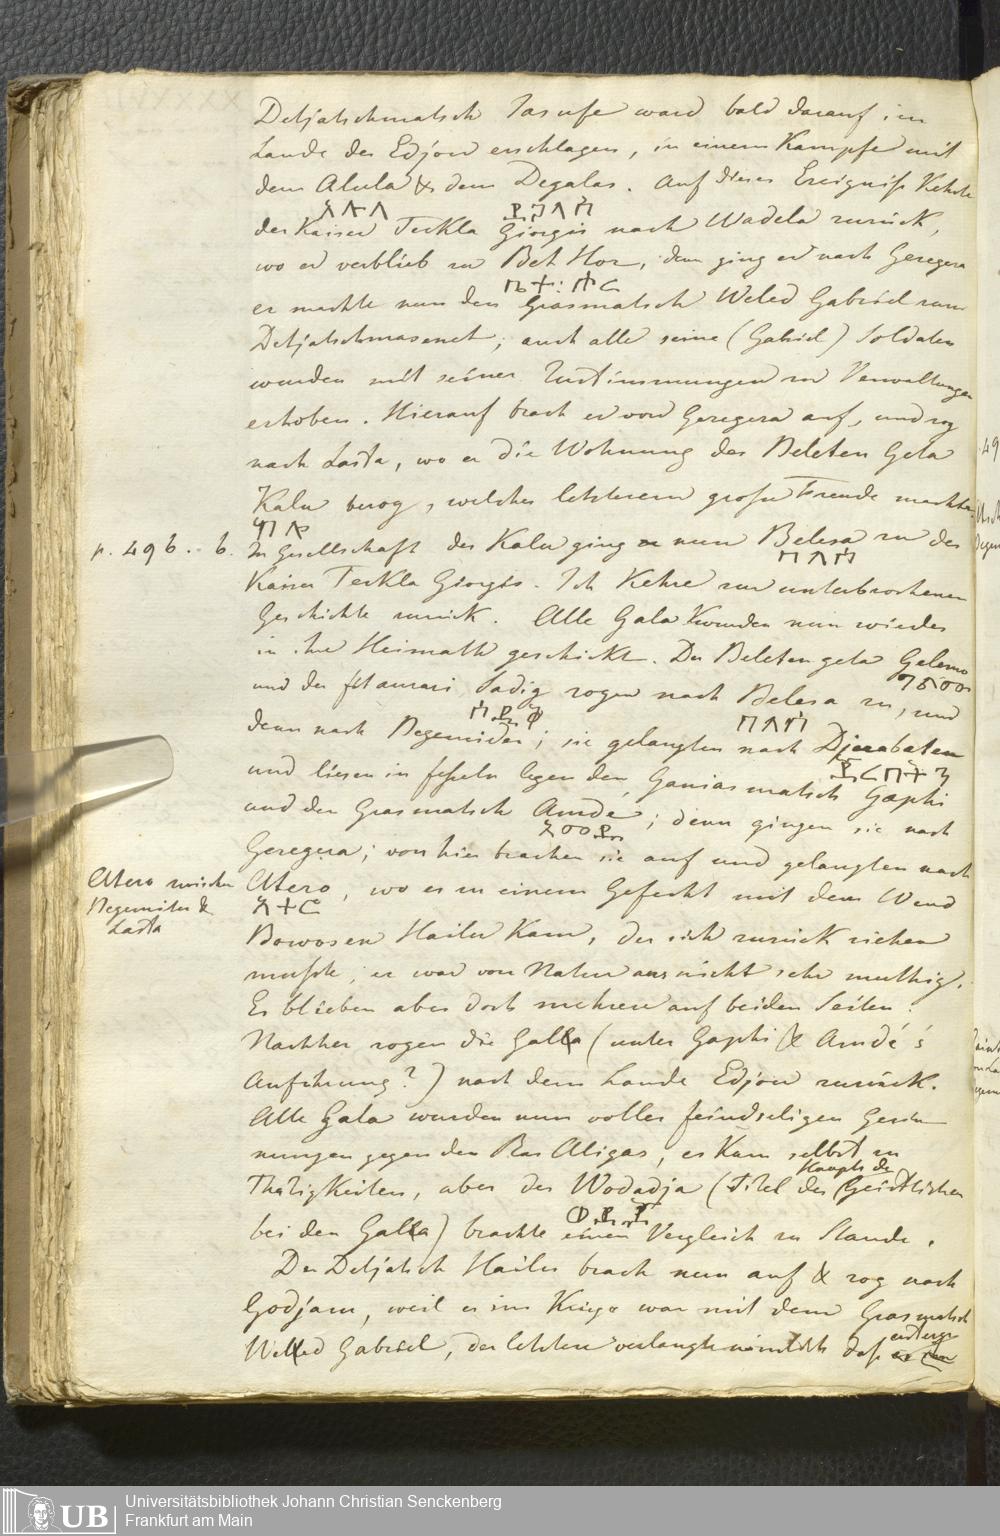 Detjatschmatsch Jasufe ward bald darauf im
Lande der Edjow erschlagen, in einem Kampfe mit
dem Alula & dem Degalas. Auf dieses Ereigniß kehrte
አሉላ
der Kaiser Teckla Giorgis nach Wadela zurück,
wo er verblieb zu Bet Hor, dann ging er nach Geregera
ቤት፡ ሖር
er machte nun den Grasmatsch Weled Gabriel zum
Detjatschmasenet; auch alle seine (Gabriel) Soldaten
wurden mit seiner Zustimmungen zu Verwaltungen
erhoben. Hierauf brach er von Geregera auf, und zog
nach Lasta, wo er die Wohnung des Beleten Geta
Kalu bezog, welches letzterem große Freude machte.
p. 496. b. In Gesellschaft des Kalu ging er nun Belesa zu der
በለሳ
Kaiser Teckla Giorgis. Ich kehre zur unterbrochenen
Geschichte zurück. Alle Gala wurden nun wieder
in ihre Heimath geschickt. Der Beleten geta Gelemo
und der fitaurari Sadig zogen nach Belesa zu, und
ሳዲቅ በለሳ
dann nach Begemider; sie gelangten nach Djerabeten
und liesen in Fesseln legen den Ganiasmatsch Gaphi
und den Grasmatsch Amde; dann gingen sie nach
Geregera; von hier brachen sie auf und gelangten nach
Atero zwischen
Begemider &
Lasta
Atero, wo es zu einem Gefecht mit dem Wend
Bowosen Hailu kam, der sich zurück ziehen
mußte; er war von Natur aus nicht sehr muthig.
Es blieben aber doch mehrere auf beiden Seiten.
Nachher zogen die Galla (unter Gaphi & Amdé's
Anführung?) nach dem Lande Edjow zurück.
Alle Gala wurden nun voller feindseligen Gesin
nungen gegen den Ras Aligas, es kam selbst zu
Thätigkeiten, aber der Wodadja (Titel des Haupts der Geistlichen
bei den Galla) brachte einen Vergleich zu Stande.
Der Detjatsch Hailu brach nun auf & zog nach
Godjam, weil er im Kriege war mit dem Grasmatsch
Welled Gabriel, der letztere verlangte nämlich daß
Universitätsbibliothek Johann Christian Senckenberg
Frankfurt am Main
UB